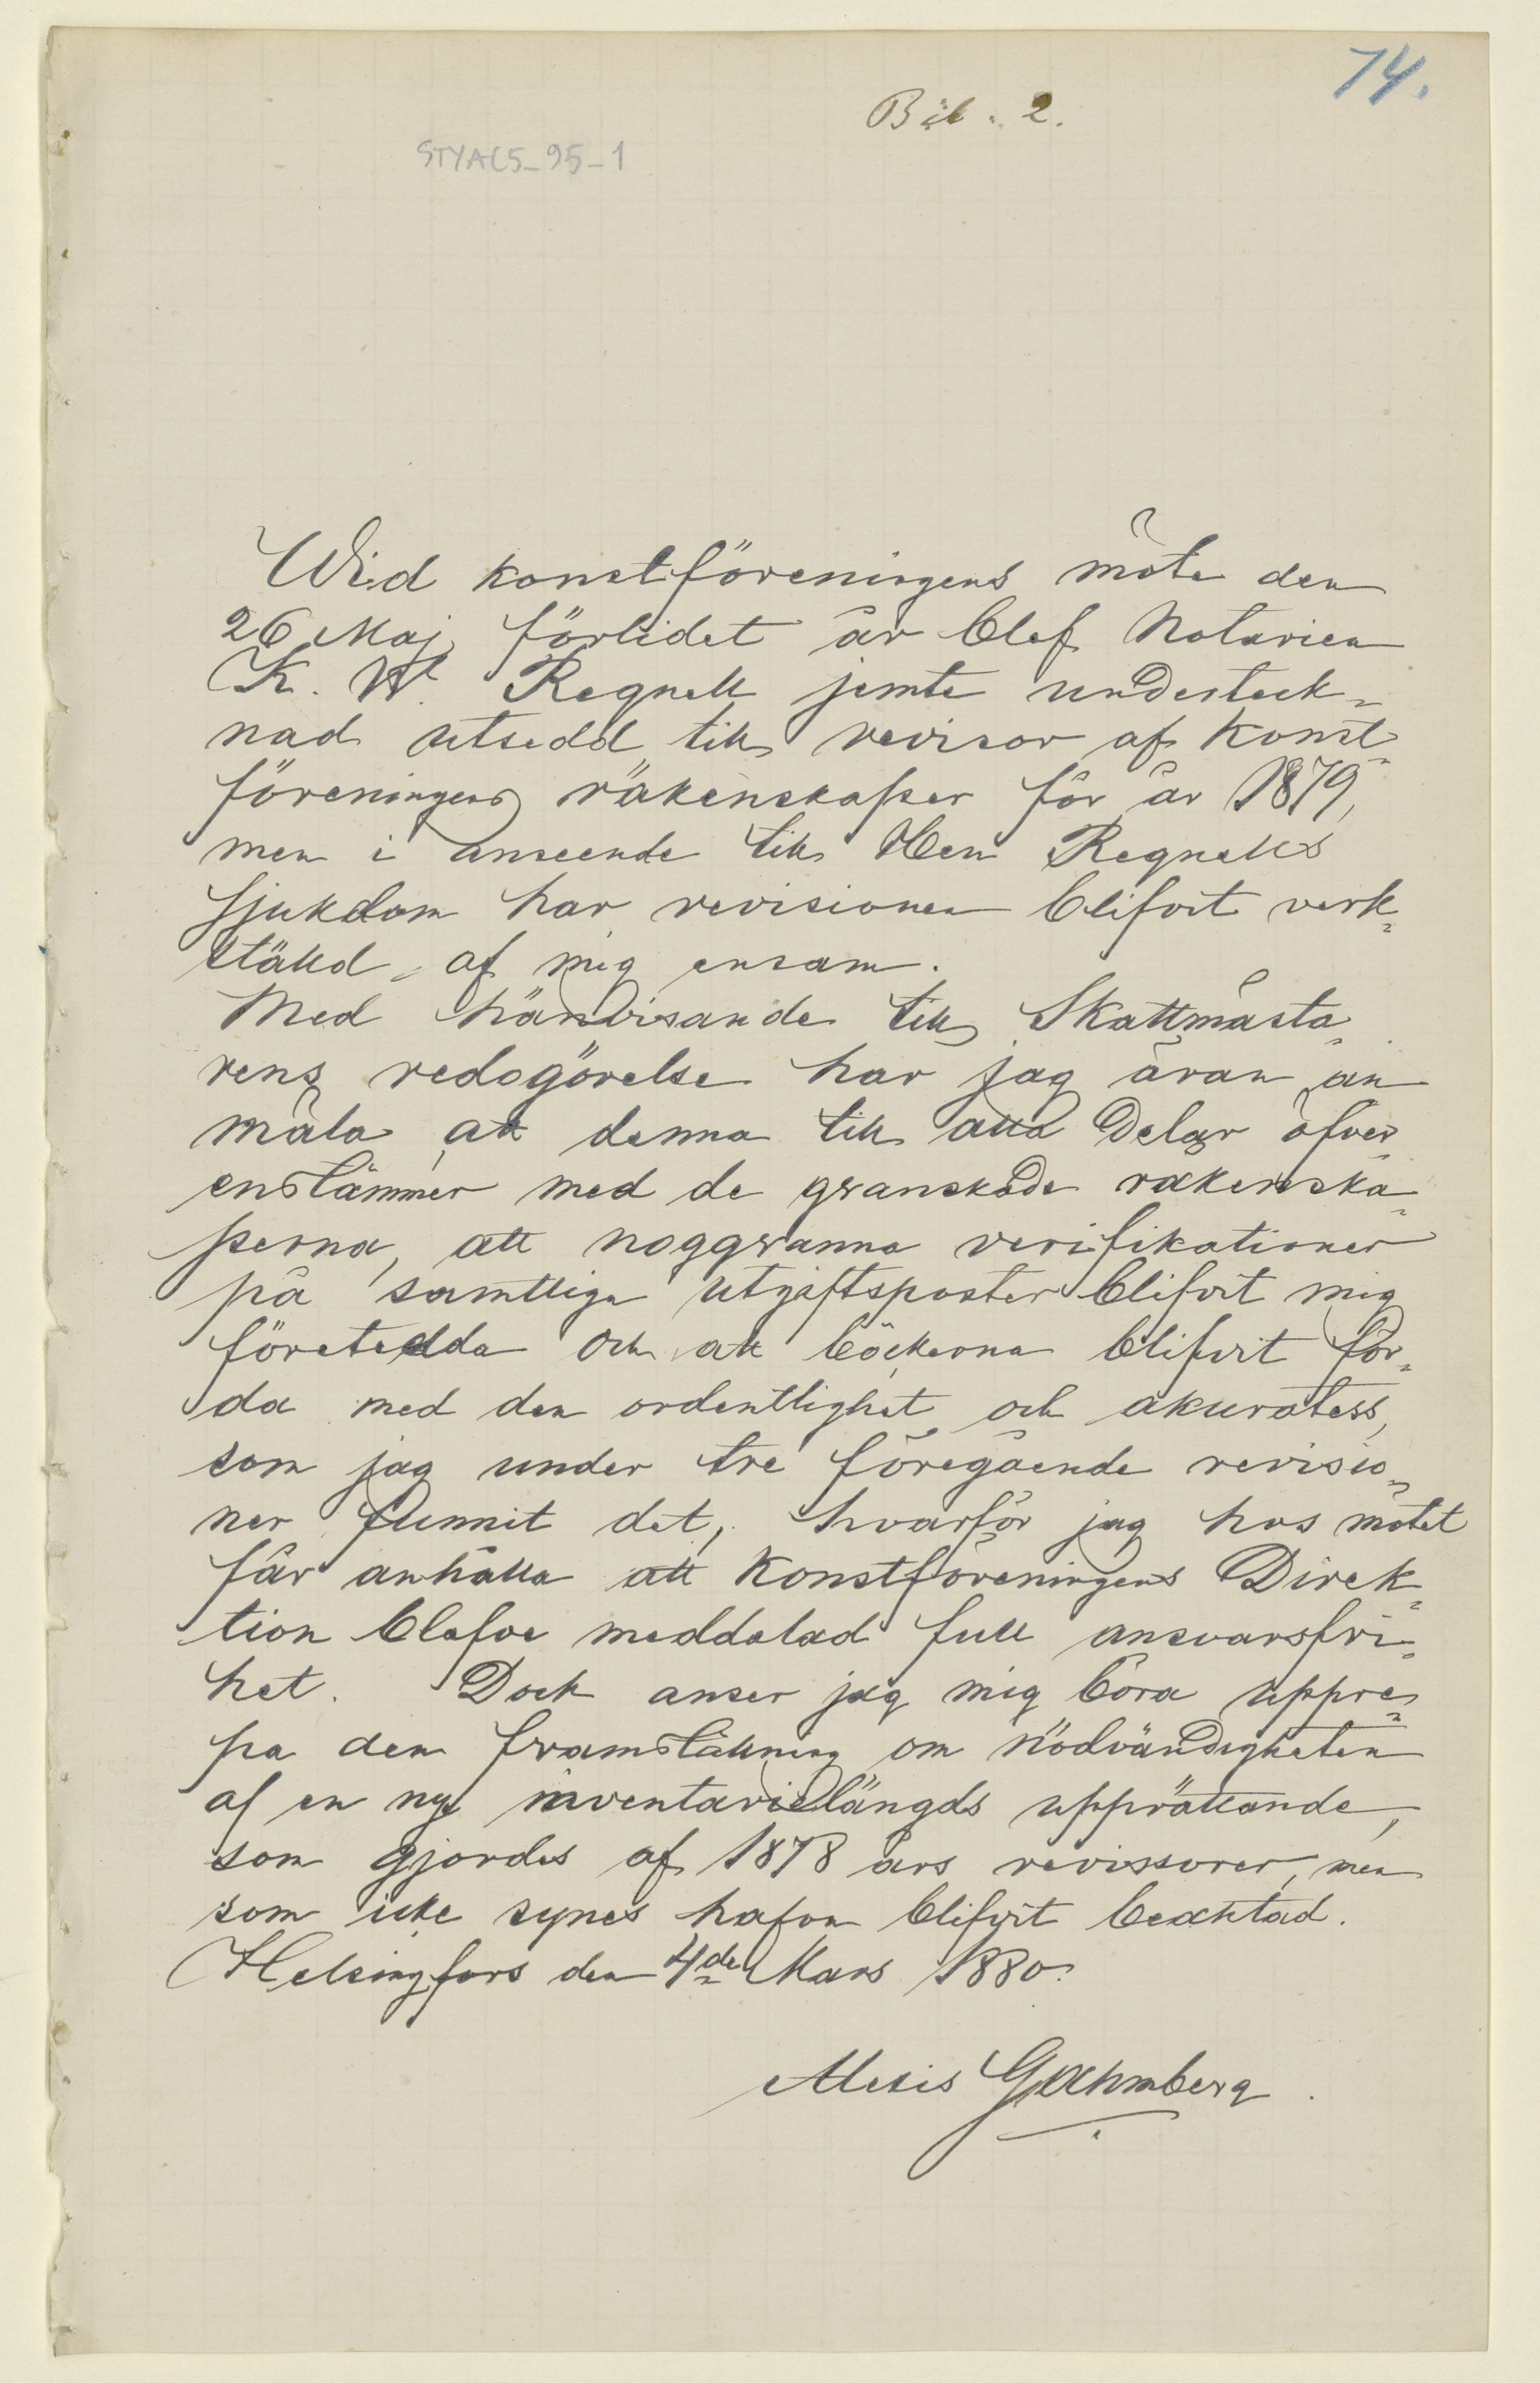 74.
Bil. 2.
STYAC5-95-1
Wid konstföreningens möte den
26 Maj förlidet år blef Notarien
K. W. Regnell jemte undesteck-
nad utsedd till revisor af konst-
föreningens räkenskaper för år 1879,
men i anseende till Herr Regnells
sjukdom har revisionen blifvit verk-
ställd af mig ensam.
Med hänvisande till Skattmästa-
rens redogörelse har jag äran an
mäla att denna till alla delar öfver
enstämmer med de granskade räkenska-
perna, att noggranna verifikationer
på samtliga utgiftsposter blifvit mig
företedda och att böckerna blifvit för-
da med den ordentlighet och akuratess,
som jag under tre föregående revisio-
ner funnit det, hvarför jag hos mötet
får anhålla att Konstföreningens Direk-
tion blefve meddelad full ansvarsfri-
het. Dock anser jag mig böra uppre-
pa den framställning om nödvändigheten
af en ny inventarielängds upprättande,
som gjordes af 1878 års revissorer, men
som icke synes hafva blifvit beaktad.
Helsingfors den 4de Mars 1880.
Alexis Grahmberg